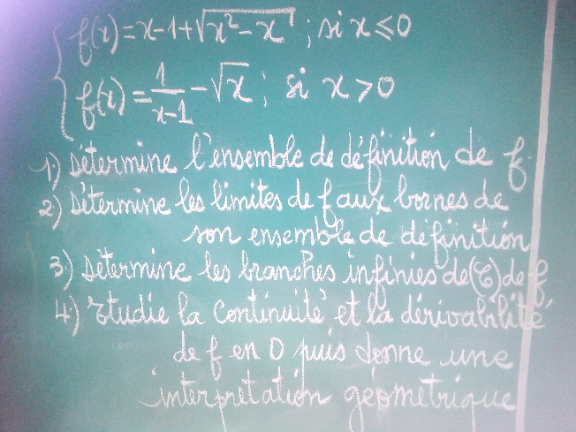 f(x) = x-1+√(x²-x) ; si x ≤ 0
f(x) = 1/(x-1) - √x ; si x > 0
1) Détermine l'ensemble de définition de f
2) Détermine les limites de f aux bornes de
son ensemble de définition
3) Détermine les branches infinies de (C) de f
4) Etudie la Continuité et la dérivabilité
de f en 0 puis donne une
interprétation géométrique